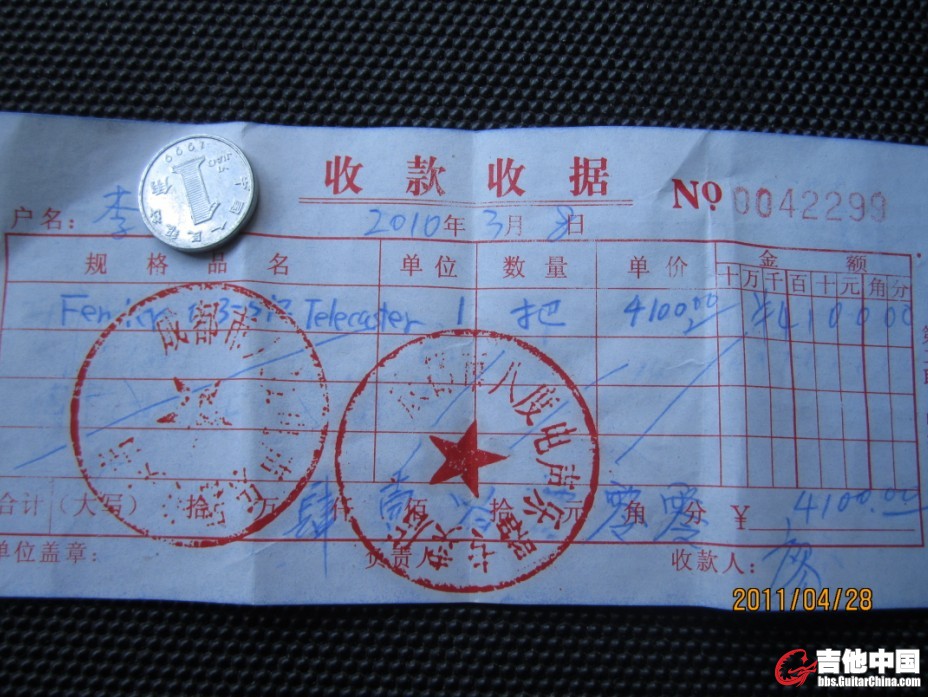 收款收据
NO 0042299
户名： 李
2010年3月8日
规格品名 单位 数量 单价 金额
十万千百十元角分
Telecaster 1 把 4100.00 ¥410000
合计（大写） 拾 万 肆仟壹佰零拾零元零角零分 ¥ 4100.00
单位盖章： 负责人 收款人： 廖
成都市八
八度电声乐器
2011/04/28
吉他中国
bbs.GuitarChina.com